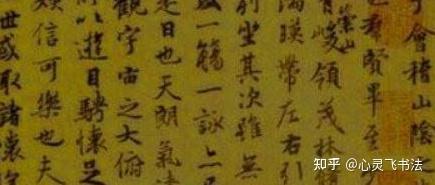 會稽山陰
也羣賢畢至
有崇山峻領茂林
湍暎帶左右引
列坐其次雖無
盛一觴一詠亦
是日也天朗氣清
觀宇宙之大俯
所以遊目騁懷足
娛信可樂也夫
世或取諸懷
知乎 @心灵飞书法